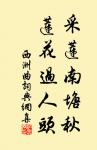 采蓮南塘秋
蓮花過人頭
西洲曲詞典網集